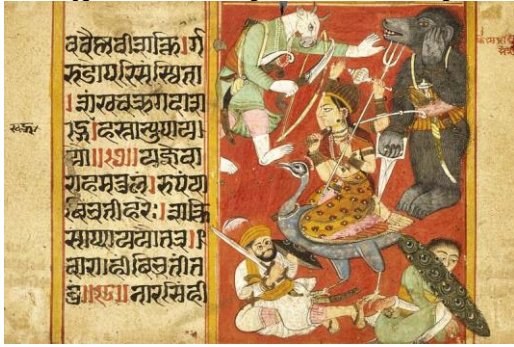 ववैष्णवीशक्ति।र्ग
रुडोपरिसंस्थिता
।शंखचक्रगदाशा
र्ङ्गहस्ताभ्युपाया
यौ॥१७॥यज्ञवा
राहमतुलं।रुपंया
बिभ्रतीहरेः।शक्ति
साप्याययौतत्र॥
वाराहीबिभ्रतीत
नुं॥१८॥नारसिंही